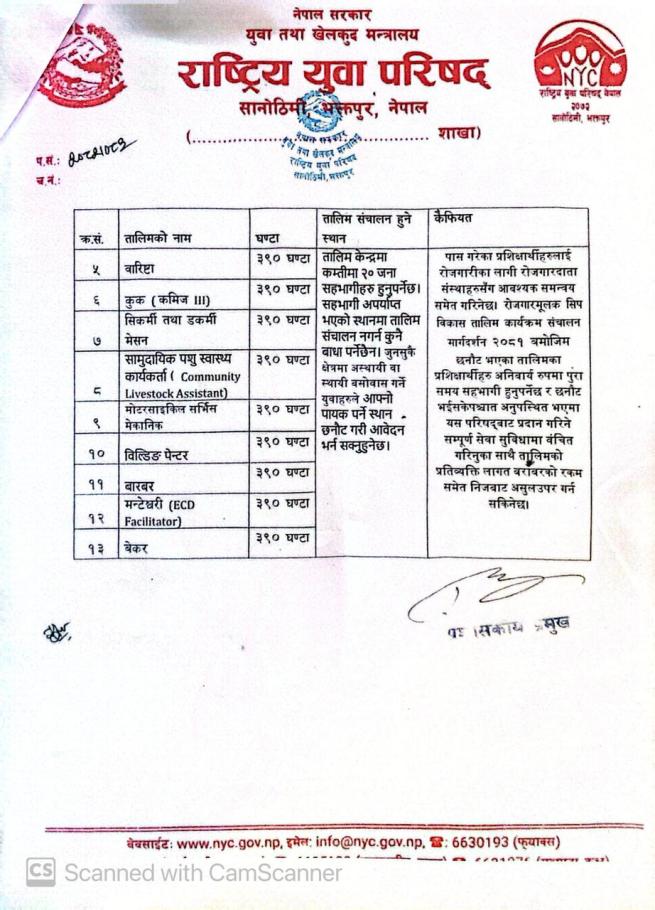 नेपाल सरकार
युवा तथा खेलकुद मन्त्रालय
राष्ट्रिय युवा परिषद
सानोठिमी, भक्तपुर, नेपाल
(.................................................. शाखा)
NYC
राष्ट्रिय युवा परिषद नेपाल
२०७२
सानोठिमी, भक्तपुर
नेपाल सरकार
युवा तथा खेलकुद मन्त्रालय
राष्ट्रिय युवा परिषद
सानोठिमी, भक्तपुर
प.सं.: २०८२।०८३
च.नं.:
क्र.सं.
तालिमको नाम
घण्टा
तालिम संचालन हुने
स्थान
कैफियत
५ वारिष्टा ३९० घण्टा
६ कुक ( कमिज III) ३९० घण्टा
सिकर्मी तथा डकर्मी
७ मेसन ३९० घण्टा
सामुदायिक पशु स्वास्थ्य
कार्यकर्ता ( Community
८ Livestock Assistant) ३९० घण्टा
मोटरसाइकिल सर्भिस
९ मेकानिक ३९० घण्टा
१० विल्डिङ पेन्टर ३९० घण्टा
११ बारबर ३९० घण्टा
मन्टेश्वरी (ECD
१२ Facilitator) ३९० घण्टा
१३ बेकर ३९० घण्टा
तालिम केन्द्रमा
कम्तीमा २० जना
सहभागीहरु हुनुपर्नेछ।
सहभागी अपर्याप्त
भएको स्थानमा तालिम
संचालन नगर्न कुनै
बाधा पर्नेछैन। जुनसुकै
क्षेत्रमा अस्थायी वा
स्थायी बसोवास गर्ने
युवाहरुले आफ्नो
पायक पर्ने स्थान
छनौट गरी आवेदन
भर्न सक्नुहुनेछ।
पास गरेका प्रशिक्षार्थीहरुलाई
रोजगारीका लागी रोजगारदाता
संस्थाहरुसँग आवश्यक समन्वय
समेत गरिनेछ। रोजगारमूलक सिप
विकास तालिम कार्यक्रम संचालन
मार्गदर्शन २०८१ बमोजिम
छनौट भएका तालिमका
प्रशिक्षार्थीहरु अनिवार्य रुपमा पुरा
समय सहभागी हुनुपर्नेछ र छनौट
भईसकेपश्चात अनुपस्थित भएमा
यस परिषद्बाट प्रदान गरिने
सम्पूर्ण सेवा सुबिधामा वंचित
गरिनुका साथै तालिमको
प्रतिव्यक्ति लागत बराबरको रकम
समेत निजबाट असुलउपर गर्न
सकिनेछ।
प्रमुख
वेवसाईटः www.nyc.gov.np, इमेलः info@nyc.gov.np, ☎: 6630193 (फ्याक्स)
CS Scanned with CamScanner